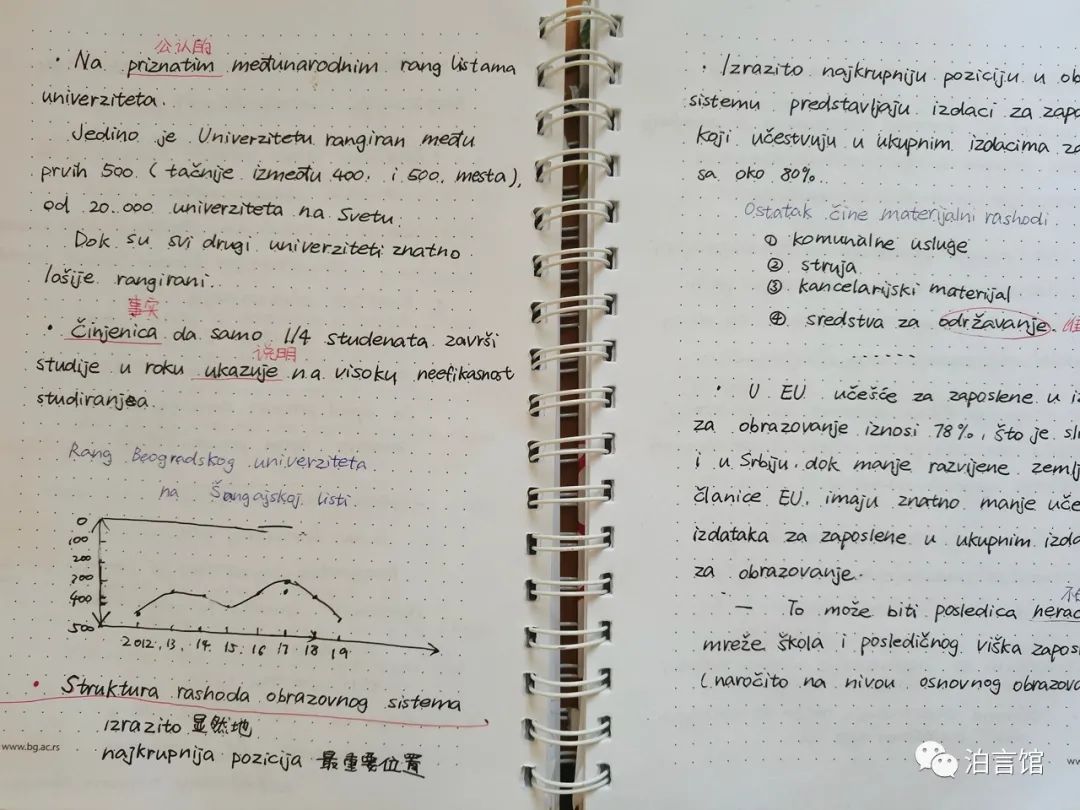 公认的
· Na priznatim međunarodnim rang listama
univerziteta.
Jedino je Univerzitetu rangiran među
prvih 500 (tačnije između 400. i 500. mesta),
od 20.000 univerziteta na Svetu.
Dok su svi drugi univerziteti znatno
lošije rangirani.
事实
· Činjenica da samo 1/4 studenata završi
说明
studije u roku ukazuje na visoku neefikasnost
studiranja.
Rang Beogradskog univerziteta
na Šangajskoj listi
0
100
200
300
400
500
2012. 13. 14. 15. 16 17 18 19
· Struktura rashoda obrazovnog sistema
izrazito 显然地
najkrupnija pozicija 最重要位置
www.bg.ac.rs
· Izrazito najkrupniju poziciju u ob
sistemu predstavljaju izdaci za zapo
koji učestvuju u ukupnim izdacima za
sa oko 80%.
Ostatak čine materijalni rashodi
① komunalne usluge
② struja
③ kancelarijski materijal
④ sredstva za održavanje.
......
· U EU učešće za zaposlene u iz
za obrazovanje iznosi 78%, što je sli
i u Srbiju. dok manje razvijene zemlj
članice EU, imaju znatno manje uče
izdataka za zaposlene u ukupnim izda
za obrazovanje.
— To može biti posledica nerac
mreže škola i posledičnog viška zapos
(naročito na nivou osnovnog obrazova
泊言馆